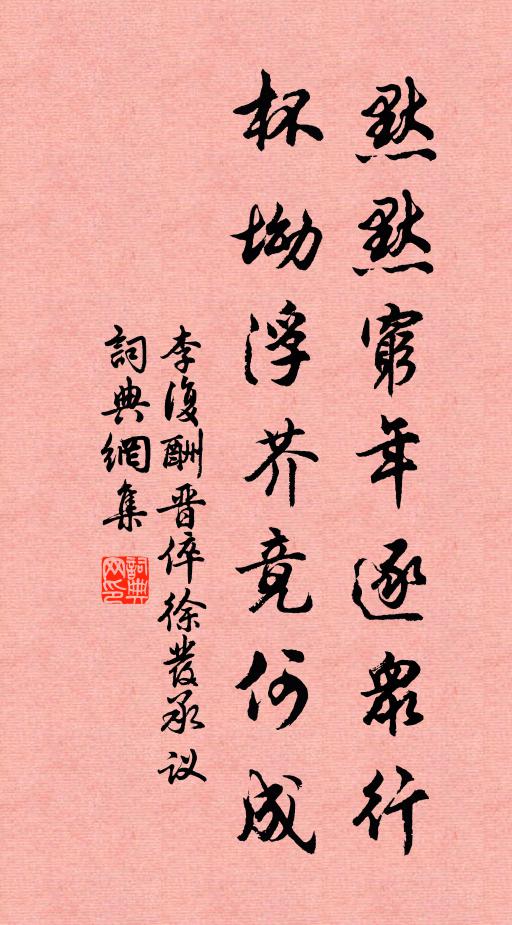 默默窮年逐衆行
杯坳浮芥竟何成
李復酬晋倅徐發承议
詞典網集
詞典网印